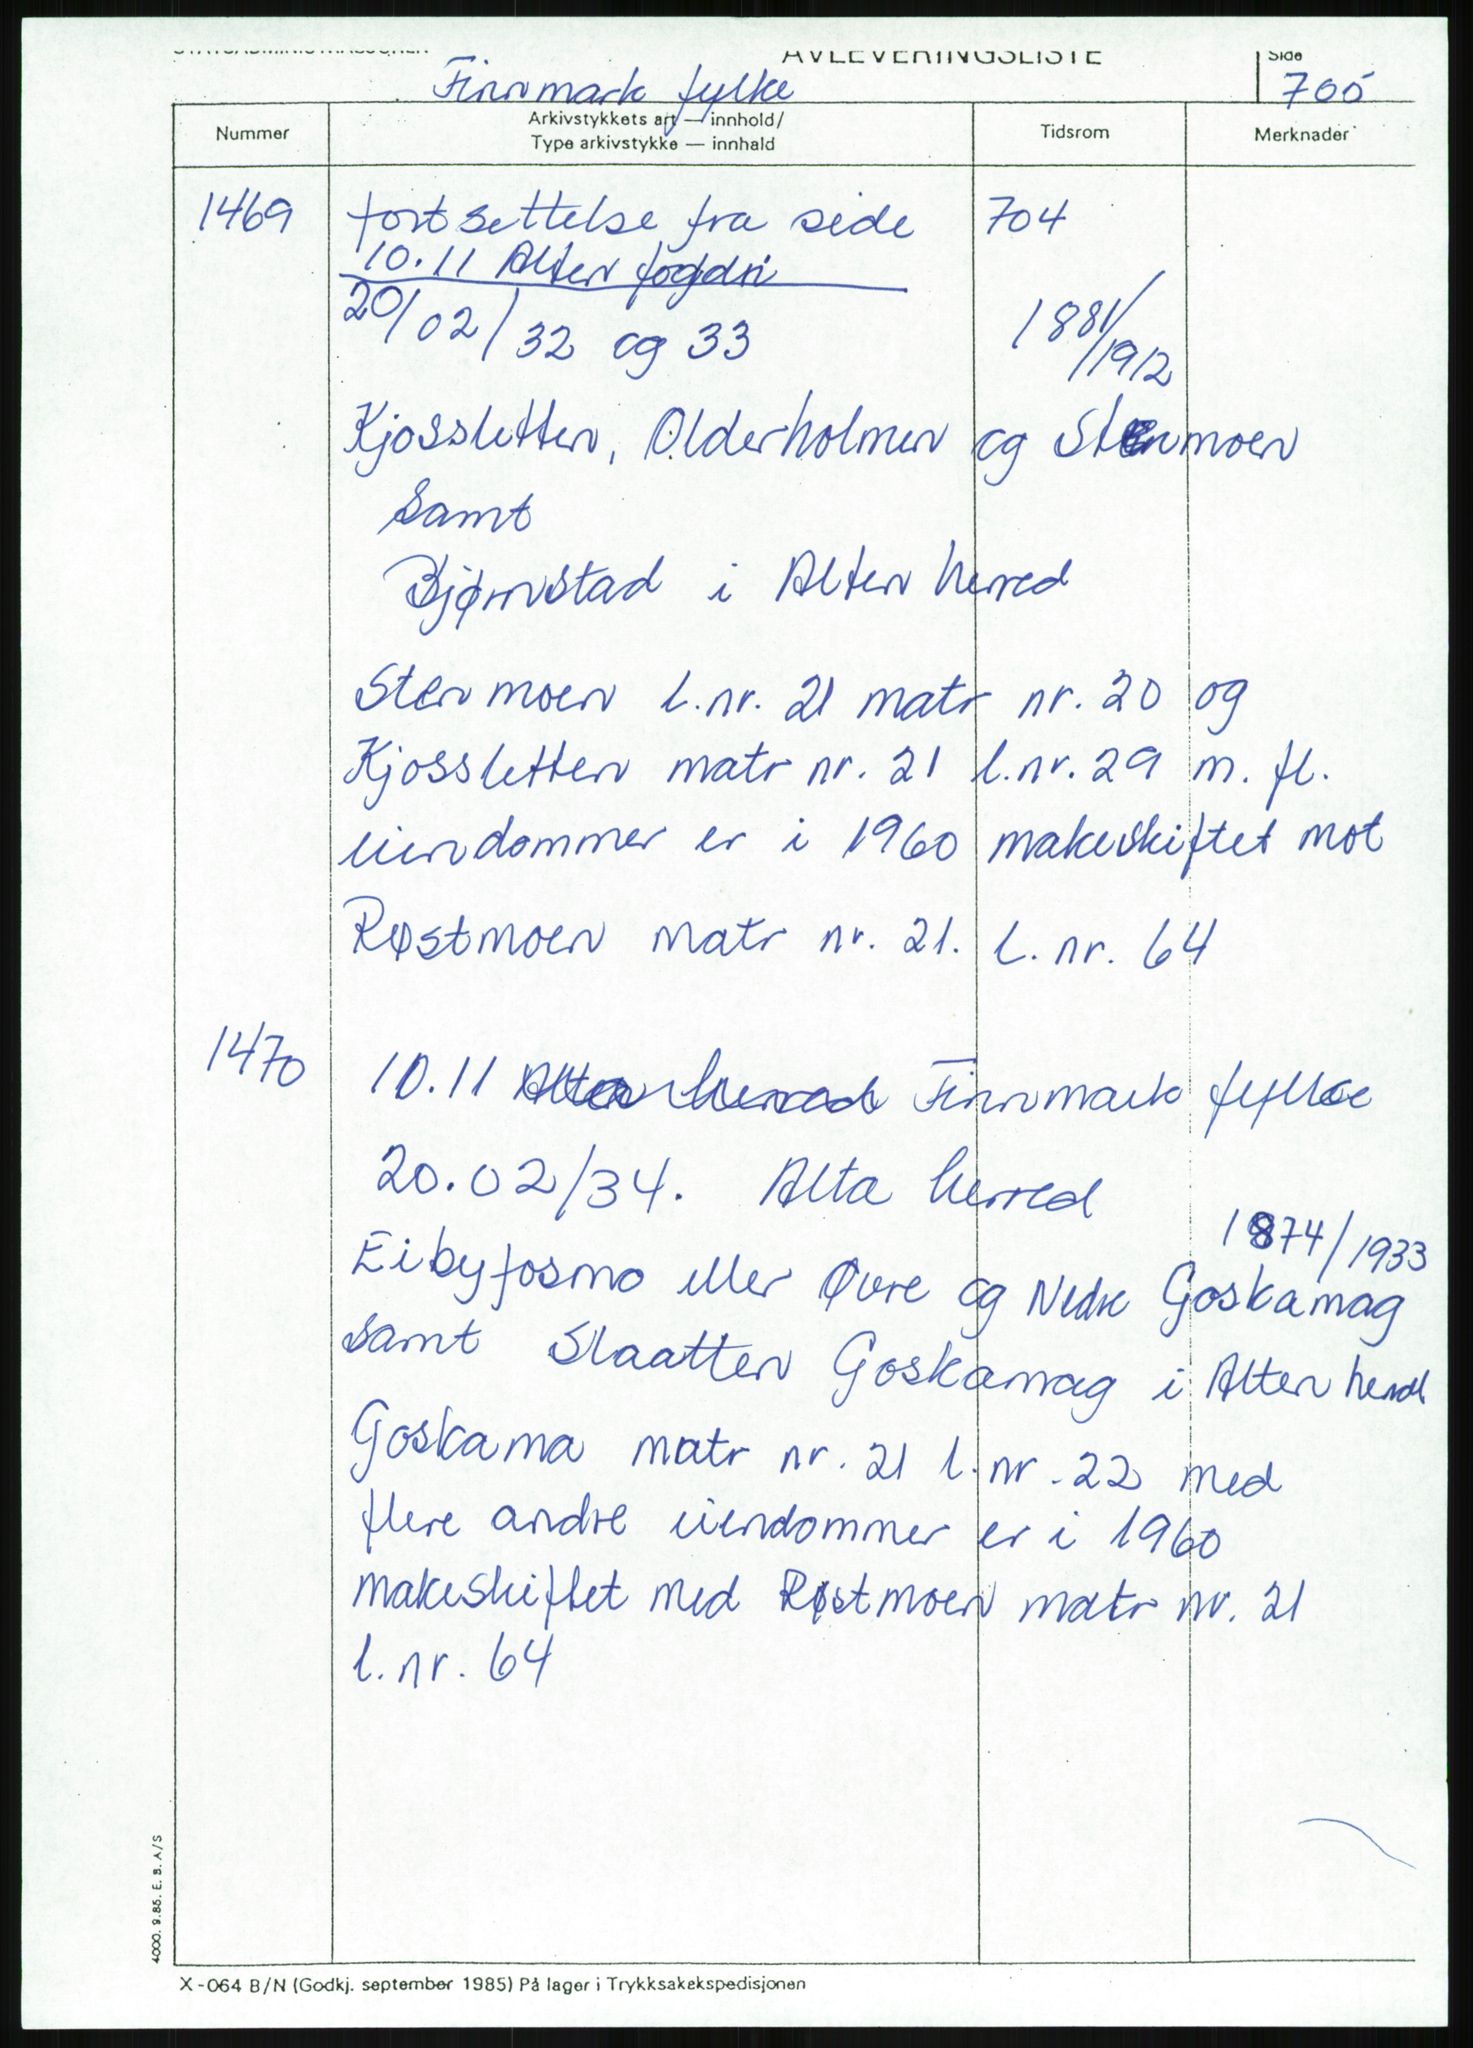 STATSADMINISTRASJONEN AVLEVERINGSLISTE Side
Finnmark fylke 705
Nummer Arkivstykkets art — innhold/ Tidsrom Merknader
Type arkivstykke — innhald
1469 fortsettelse fra side 704
10.11 Alten fogdri
20/02/32 og 33 1881/
/1912
Kjossletten, Olderholmen og Stenmoen
samt
Bjørnstad i Alten herred
Stenmoen l.nr. 21 matr nr. 20 og
Kjossletten matr nr. 21 l.nr. 29 m. fl.
eiendommer er i 1960 makeskiftet mot
Røstmoen matr nr. 21. l. nr. 64
1470 10.11 Alta herred Finnmark fylke
20.02/34. Alta herred
1874/1933
Eibyfosmo eller Øvre og Nedre Goskamag
samt Slaatten Goskamag i Alten herred
Goskama matr nr. 21 l.nr. 22 med
flere andre eiendommer er i 1960
makeskiftet med Røstmoen matr nr. 21
l. nr. 64
4000. 9.85. E. B. A/S
X-064 B/N (Godkj. september 1985) På lager i Trykksakekspedisjonen